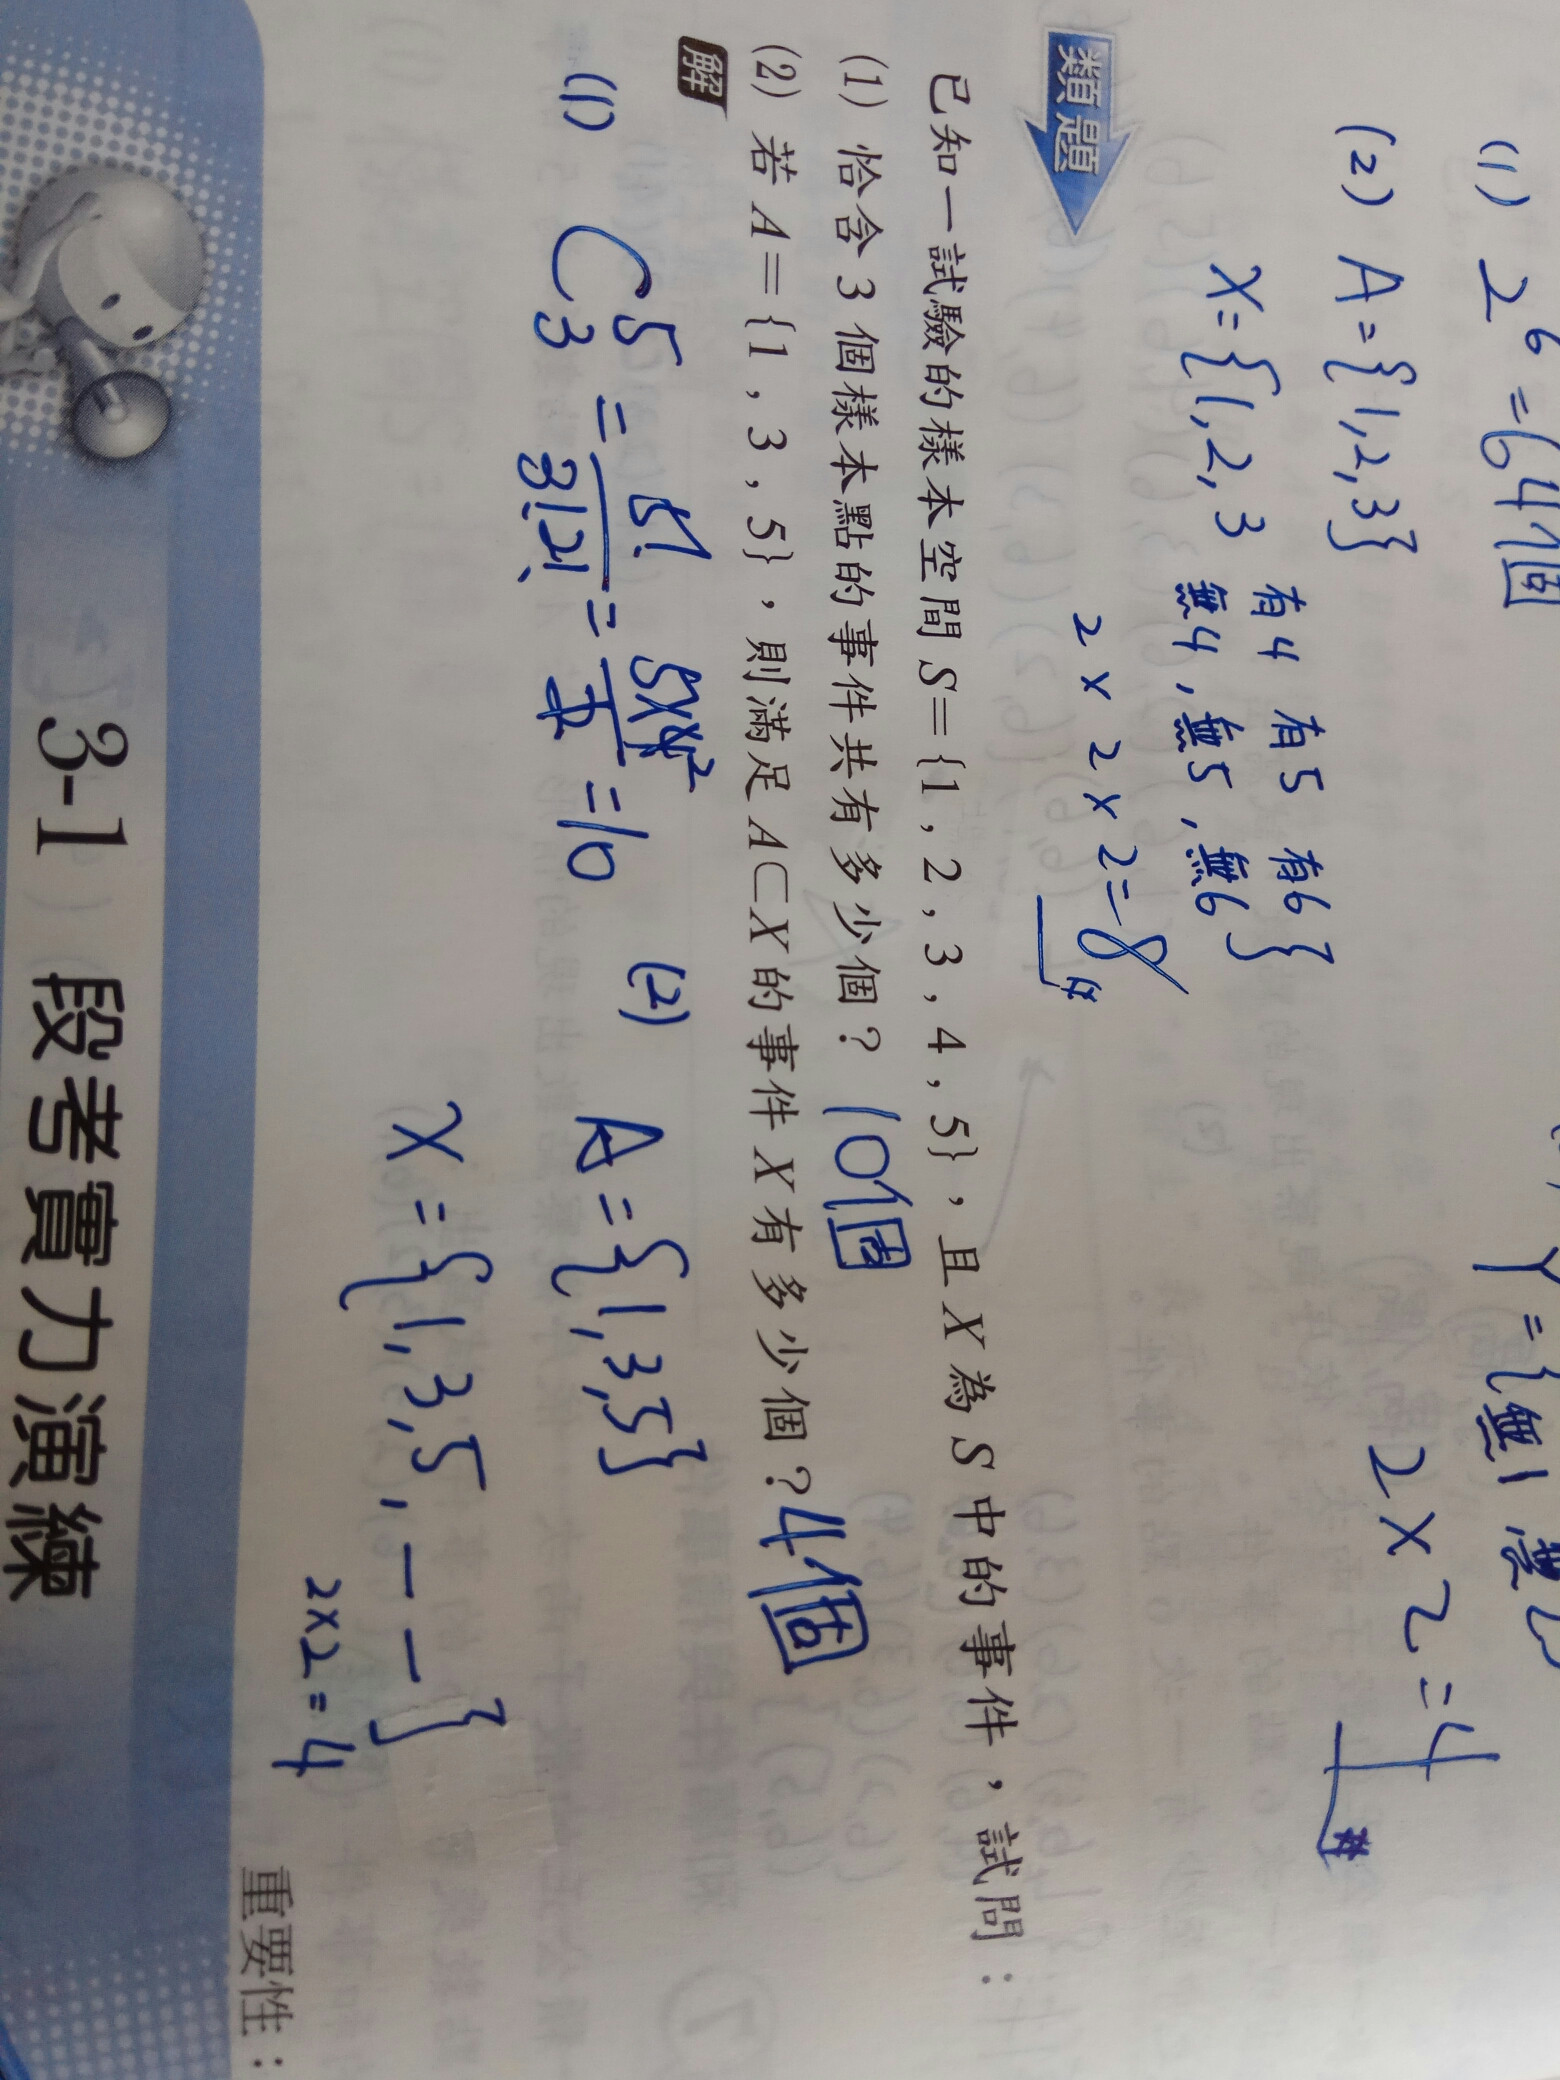 (1) 2⁶=64個
(2) A={1,2,3}
X={1,2,3 有4 有5 有6}
無4,無5,無6
2×2×2=8
Y={無1
2×2=4
類題
已知一試驗的樣本空間 S={1,2,3,4,5},且 X 為 S 中的事件,試問:
(1) 恰含 3 個樣本點的事件共有多少個? 10個
(2) 若 A={1,3,5},則滿足 A⊂X 的事件 X 有多少個? 4個
解
(1) C⁵₃ = 5!/3!2! = 5×4²/2 =10
(2) A={1,3,5}
X={1,3,5,— —}
2×2=4
重要性:
3-1 段考實力演練